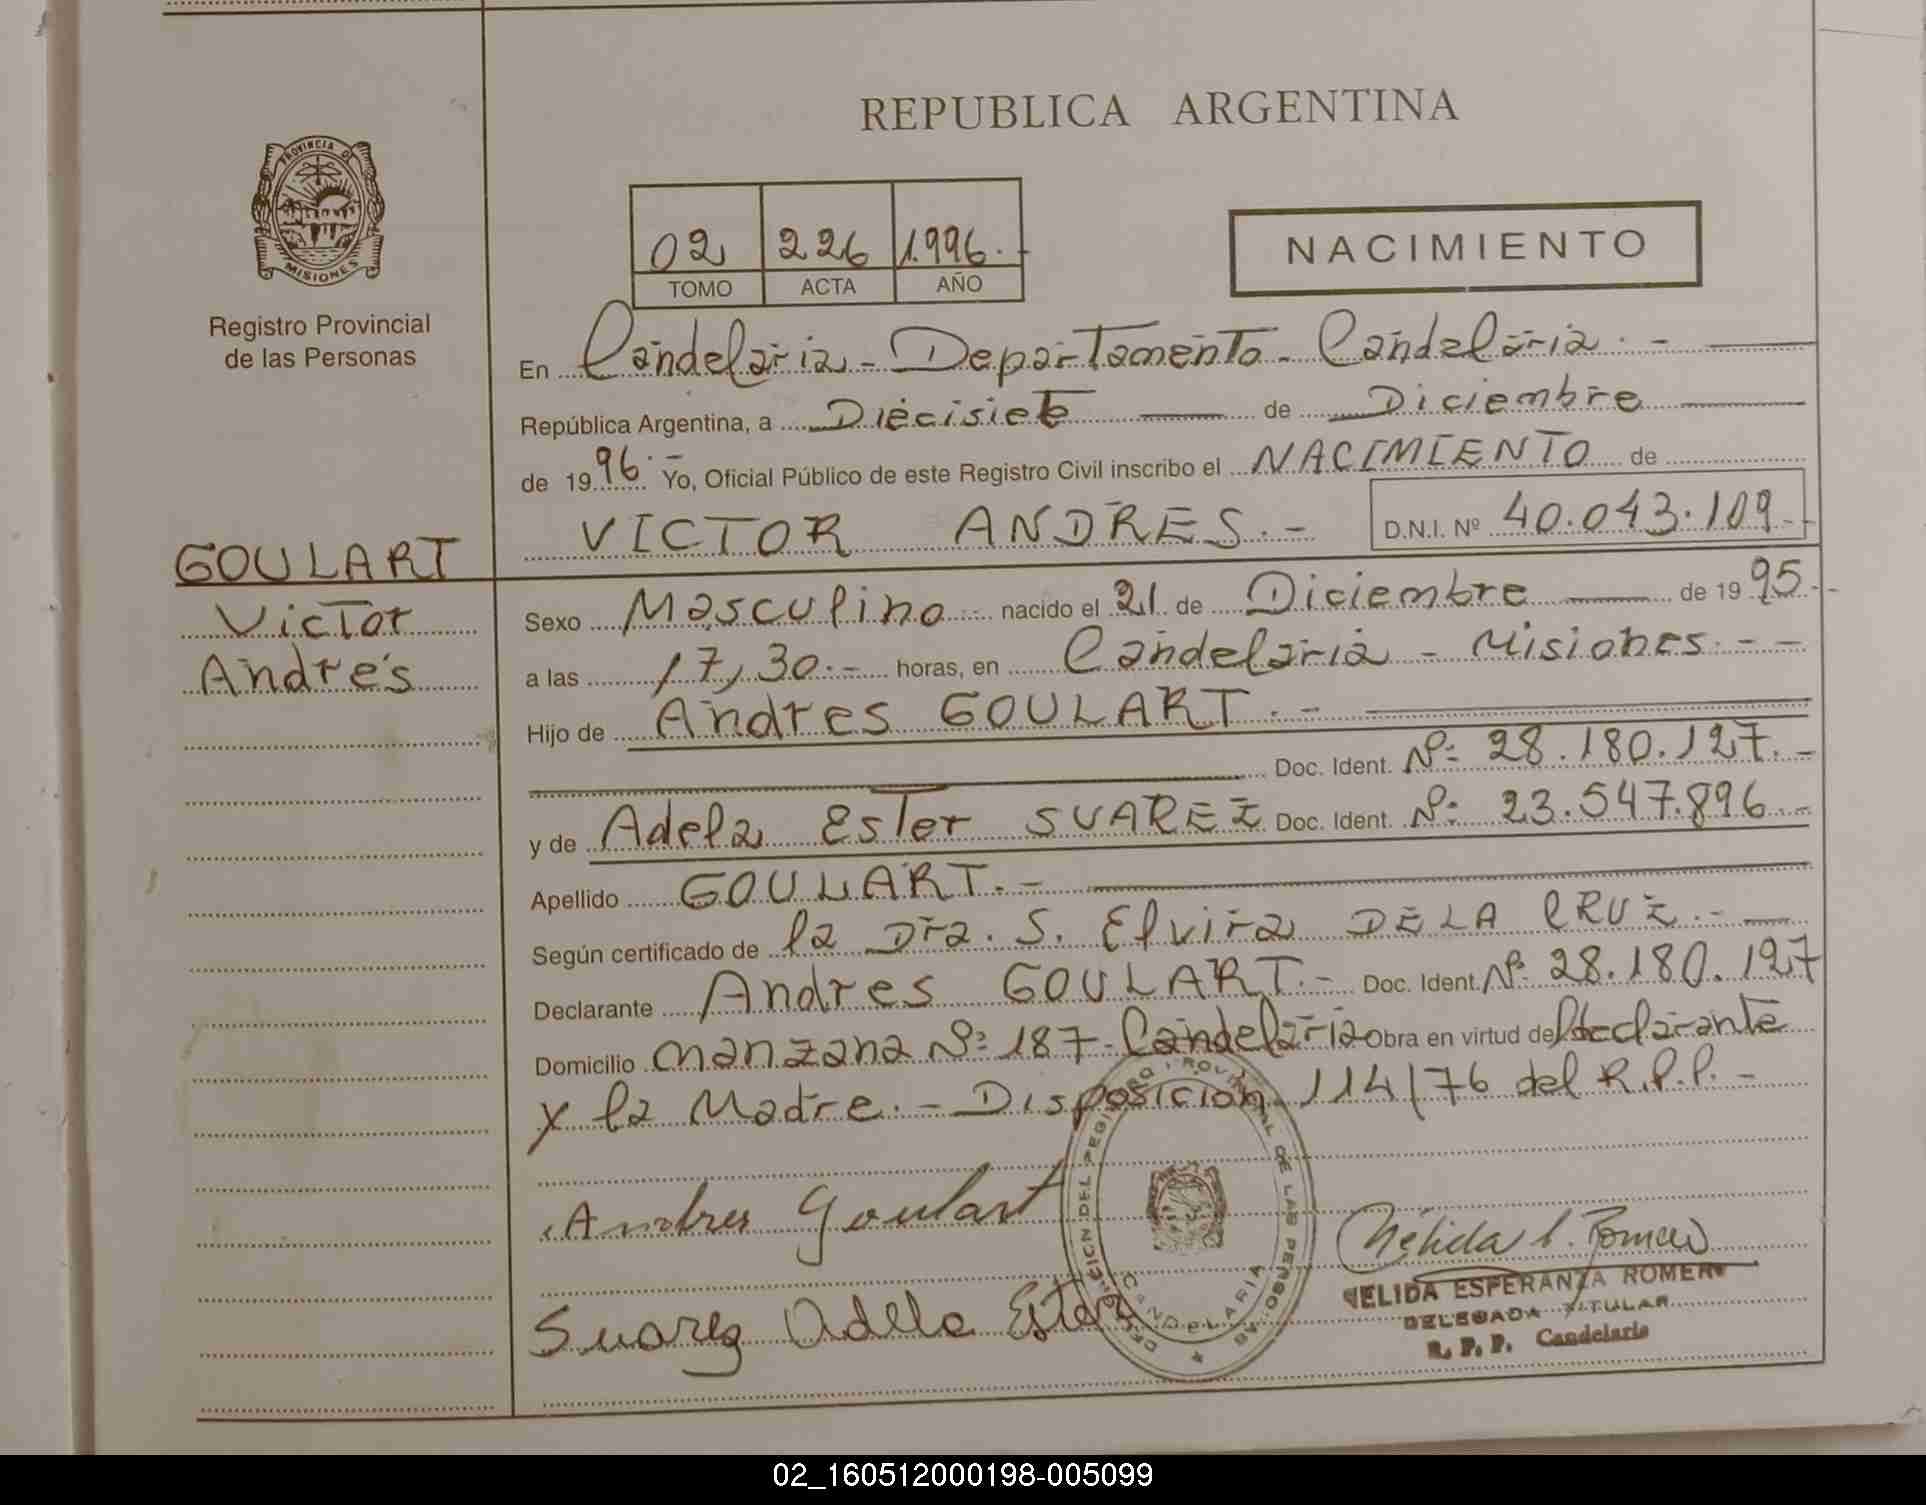 REPUBLICA ARGENTINA
PROVINCIA DE
MISIONES
Registro Provincial
de las Personas
02 226 1.996.-
TOMO ACTA AÑO
NACIMIENTO
En Candelaria - Departamento - Candelaria. -
República Argentina, a Diecisiete de Diciembre
de 1996.- Yo, Oficial Público de este Registro Civil inscribo el NACIMIENTO de
VICTOR ANDRES.- D.N.I. Nº 40.043.109.-
GOULART
Victor
Andrés
Sexo Masculino.- nacido el 21 de Diciembre de 1995.-
a las 17,30.- horas, en Candelaria - Misiones.- -
Hijo de Andres GOULART.-
Doc. Ident. Nº: 28.180.127.-
y de Adela Ester SUAREZ Doc. Ident. Nº: 23.547.896.-
Apellido GOULART.-
Según certificado de la Dra. S. Elvira DE LA CRUZ.-
Declarante Andres GOULART.- Doc. Ident. Nº 28.180.127
Domicilio Manzana Nº: 187-Candelaria Obra en virtud del declarante
y la Madre.- Disposición 114/76 del R.P.P.-
Andres Goulart
Suarez Adela Ester
DELEGACION DEL REGISTRO PROVINCIAL DE LAS PERSONAS
CANDELARIA
Nélida E. Romero
NELIDA ESPERANZA ROMERO
DELEGADA TITULAR
R. P. P. Candelaria
02_160512000198-005099